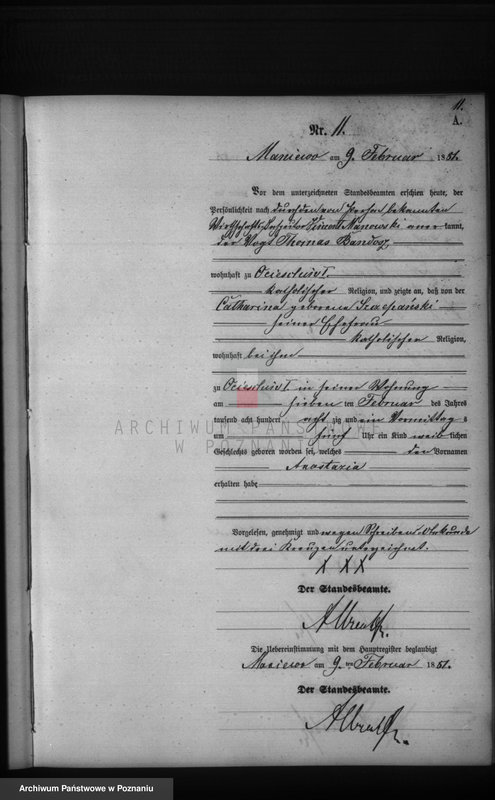 11.
A.
Nr. 11.
Maniewo am 9. Februar 1881.
Vor dem unterzeichneten Standesbeamten erschien heute, der
Persönlichkeit nach durch den von Person bekannten
Wirthschafts-Inspector Vincent Manowski aner kannt,
der Vogt Thomas Bandosz,
wohnhaft zu Ocieschin I.
katholischer Religion, und zeigte an, daß von der
Catharina geborene Szczepański
seiner Ehefrau
katholischer Religion,
wohnhaft bei ihm
zu Ocieschin I in seiner Wohnung
am sieben ten Februar des Jahres
tausend acht hundert acht zig und ein Vormittag s
um fünf Uhr ein Kind weib lichen
Geschlechts geboren worden sei, welches den Vornamen
Anastazia
erhalten habe
Vorgelesen, genehmigt und wegen Schreibens Unkunde
mit drei Kreuzen unterzeichnet.
X X X
Der Standesbeamte.
Die Uebereinstimmung mit dem Hauptregister beglaubigt
Maniewo am 9. ten Februar 1881.
Der Standesbeamte.
ARCHIWUM PAŃSTWOWE
W POZNANIU
Archiwum Państwowe w Poznaniu